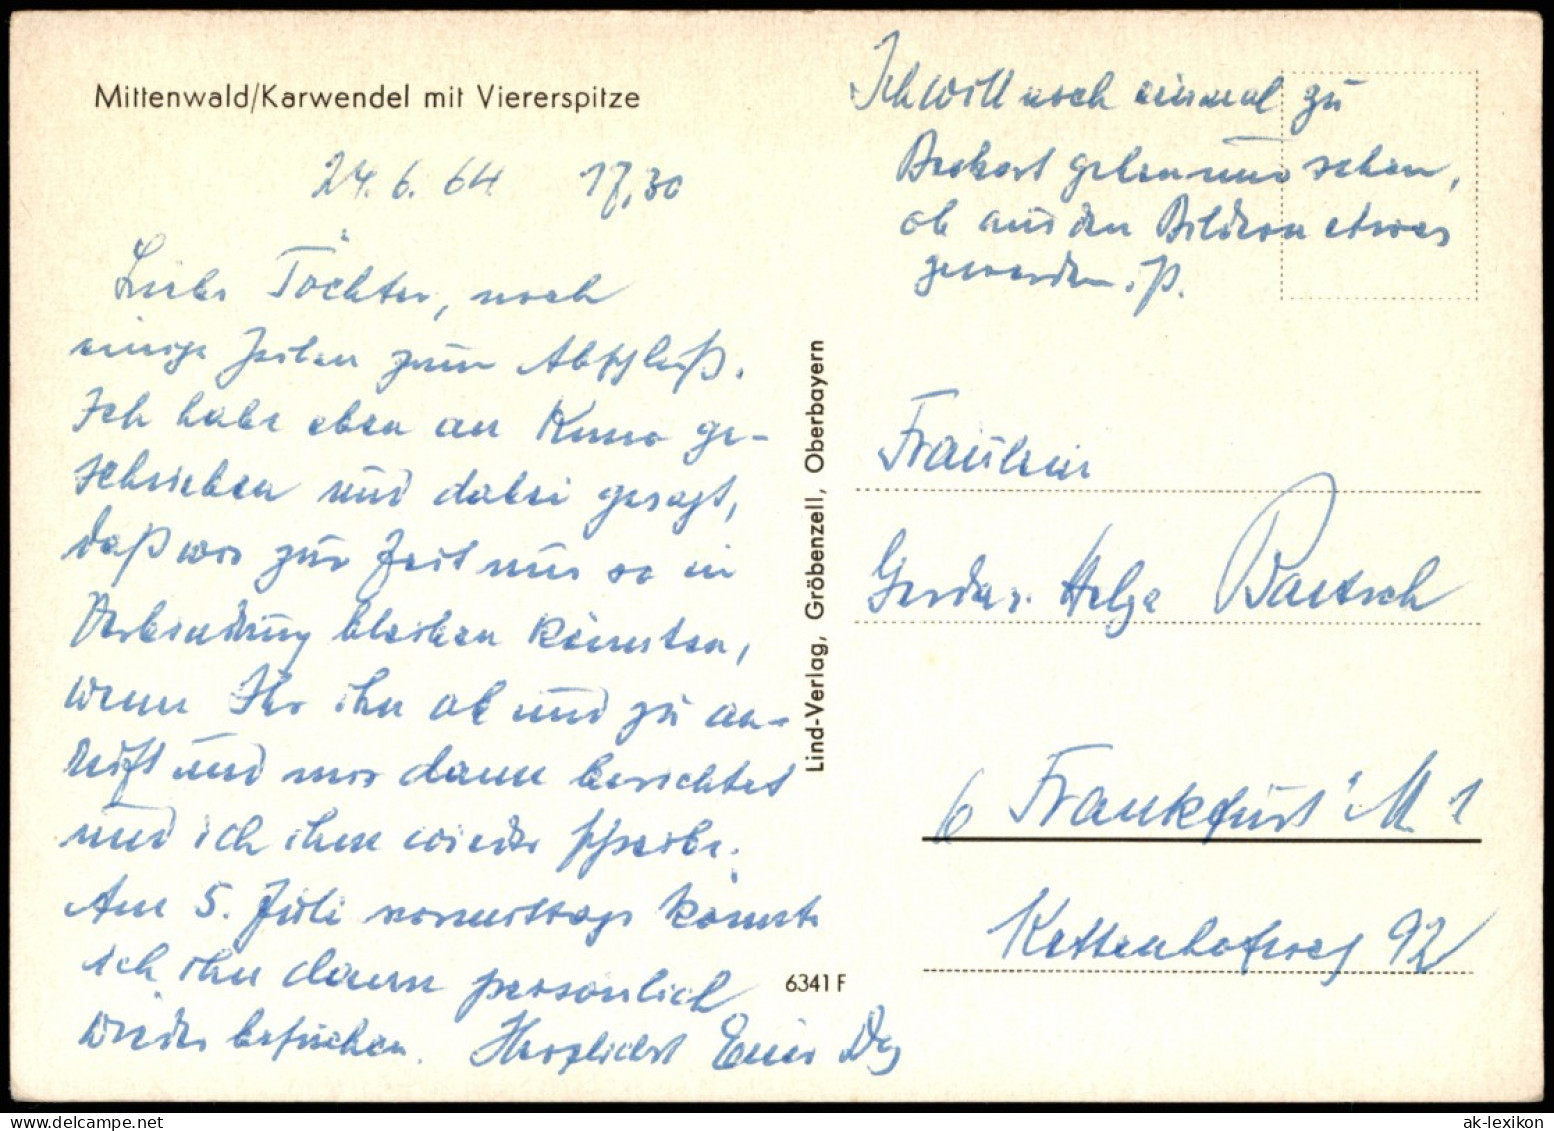 Mittenwald/Karwendel mit Viererspitze
24.6.64 17,30
Liebe Töchter, noch
einige Zeilen zum Abschluß.
Ich habe eben an Kuno ge-
schrieben und dabei gesagt,
daß wir zur Zeit nur so in
Verbindung bleiben könnten,
wenn Ihr ihn ab und zu an-
ruft und mir dann berichtet
und ich ihm wieder schreibe.
Am 5. Juli vormittags könnte
ich ihn dann persönlich
wieder besuchen. Herzlichst Euer
Ich will noch einmal zu
gehen und sehen,
ob aus den Bildern etwas
geworden ist.
Lind-Verlag, Gröbenzell, Oberbayern
6341 F
Fräulein
Gerda u. Helga Baetsch
6 Frankfurt M 1
Kettenhofweg 92
ak-lexikon